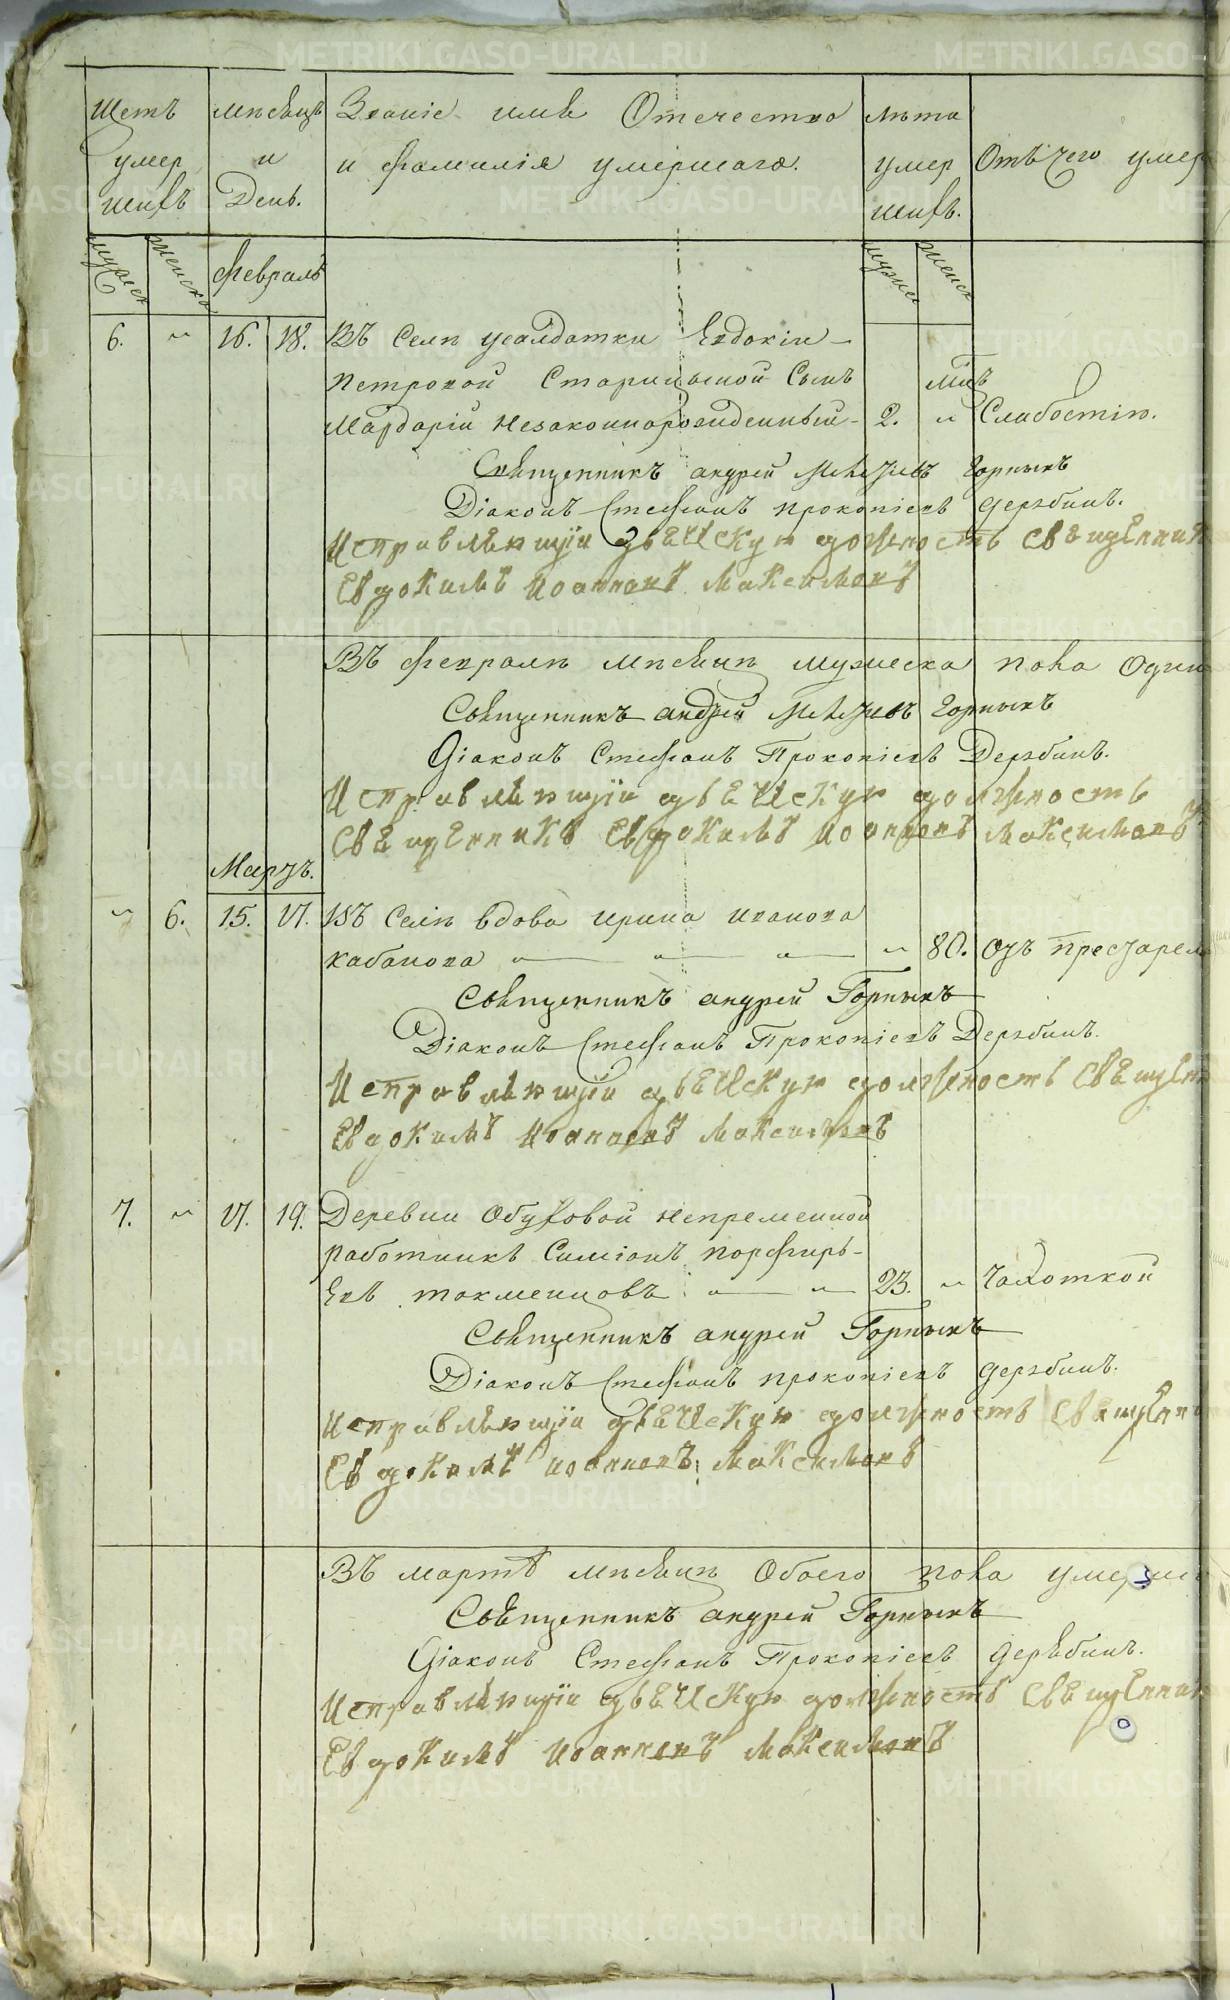 Щетъ умер шихъ
мѣсяцъ и День.
Званіе имя Отечество
и фамилія умершаго.
лѣта умер шихъ.
Отъ чего умер
мужеск
женска
февраль
мужес
женск
6. " 16. 18. Въ Селѣ усалдатки Евдокіи
Петровой Сынъ
мѣс
Мардарій незаконнорожденный 2. " Слабостію.
Священникъ андрей Горныхъ
Діаконъ Стефанъ прокопіевъ дерябинъ.
Исправляющій дьяческую должность священник
Евдокимъ иоанновъ Максимовъ
Въ февралѣ мѣсяцѣ мужеска пола Один
Священникъ андрей Горныхъ
Діаконъ Стефанъ Прокопіевъ Дерябинъ.
Исправляющій дьяческую должность
священникъ Евдокимъ иоанновъ Максимовъ
Мартъ.
" 6. 15. 17. Въ Селѣ вдова ирина иванова
кабанова " " " " 80. отъ престарел
Священникъ андрей Горныхъ
Діаконъ Стефанъ Прокопіевъ Дерябинъ.
Исправляющій дьяческую должность священ
Евдокимъ иоанновъ Максимовъ
7. " 17. 19. Деревни Обуховой непременной
работникъ Симіонъ порфирь-
евъ токменцовъ " " 23. " Чахоткой
Священникъ андрей Горныхъ
Діаконъ Стефанъ прокопіевъ дерябинъ.
Исправляющій дьяческую должность священ
Евдокимъ иоанновъ Максимовъ
Въ мартѣ мѣсяцѣ Обоего пола
Священникъ андрей Горныхъ
Діаконъ Стефанъ Прокопіевъ дерябинъ.
Исправляющій дьяческую должность священник
Евдокимъ иоанновъ Максимовъ
METRIKI.GASO-URAL.RU